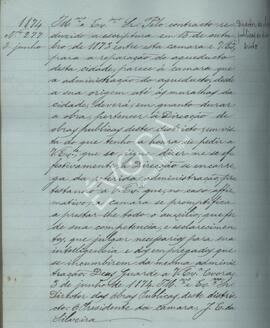 1874
Nº 277
3 junho
Illmo e Exmo Snr. Pelo contracto re-
duzido a escriptura em 15 de outu-
bro de 1873 entre esta camara e V. Exª
para a reparação do aqueducto
desta cidade, parece á camara que
a administração do aqueducto, desde
a sua origem até ás muralhas da
cidade, deverá, em quanto durar
a obra, pertencer á Direcção de
obras publicas deste districto, em vis-
ta do que tenho a honra de pedir a
V. Exª que se digne dizer-me se ef-
fectivamente a Direcção se encarre-
ga da referida administração, pro-
testando a V. Exª que, no caso affir-
mativo, a camara se promptifica
a prestar lhe todo o auxilio que fôr
de sua competencia, e esclarecimen-
tos que julgar necessarios para sua
intelligencia e dos empregados que
se incumbirem da mesma admi-
nistração. Deus Guarde a V. Exª Evora
3 de junho de 1874. Illmo e Exmo Snr.
Director das obras Publicas deste distri-
cto. O Presidente da camara J. E. da
Silveira